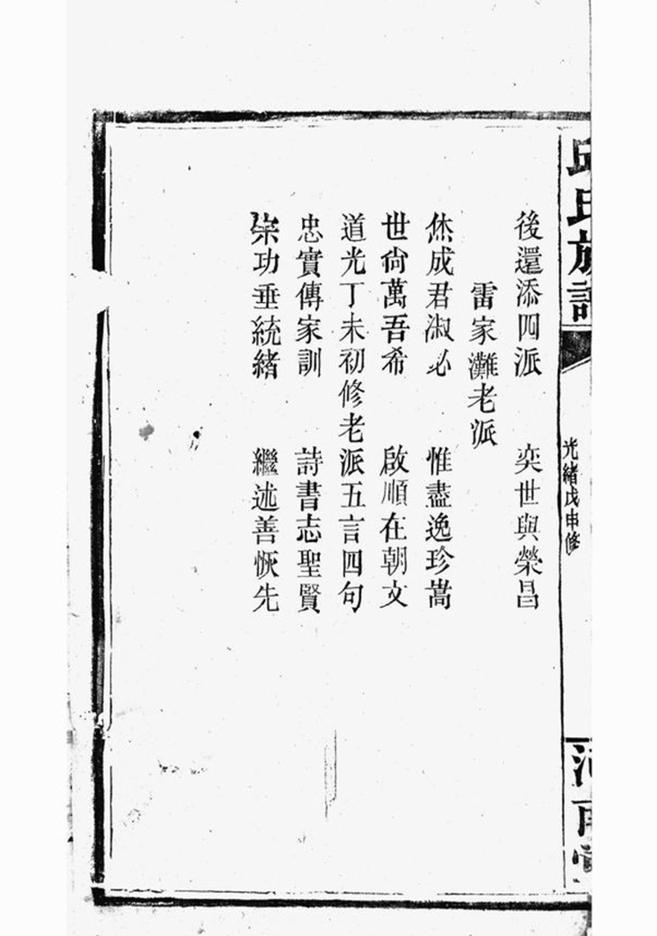 邱氏族譜
光緒戊申修
河南堂
後還添四派 奕世與榮昌
雷家灘老派
烋成君淑必 惟盡逸珍嵩
世尙萬吾希 啟順在朝文
道光丁未初修老派五言四句
忠實傳家訓 詩書志聖賢
宗功垂統緒 繼述善恢先